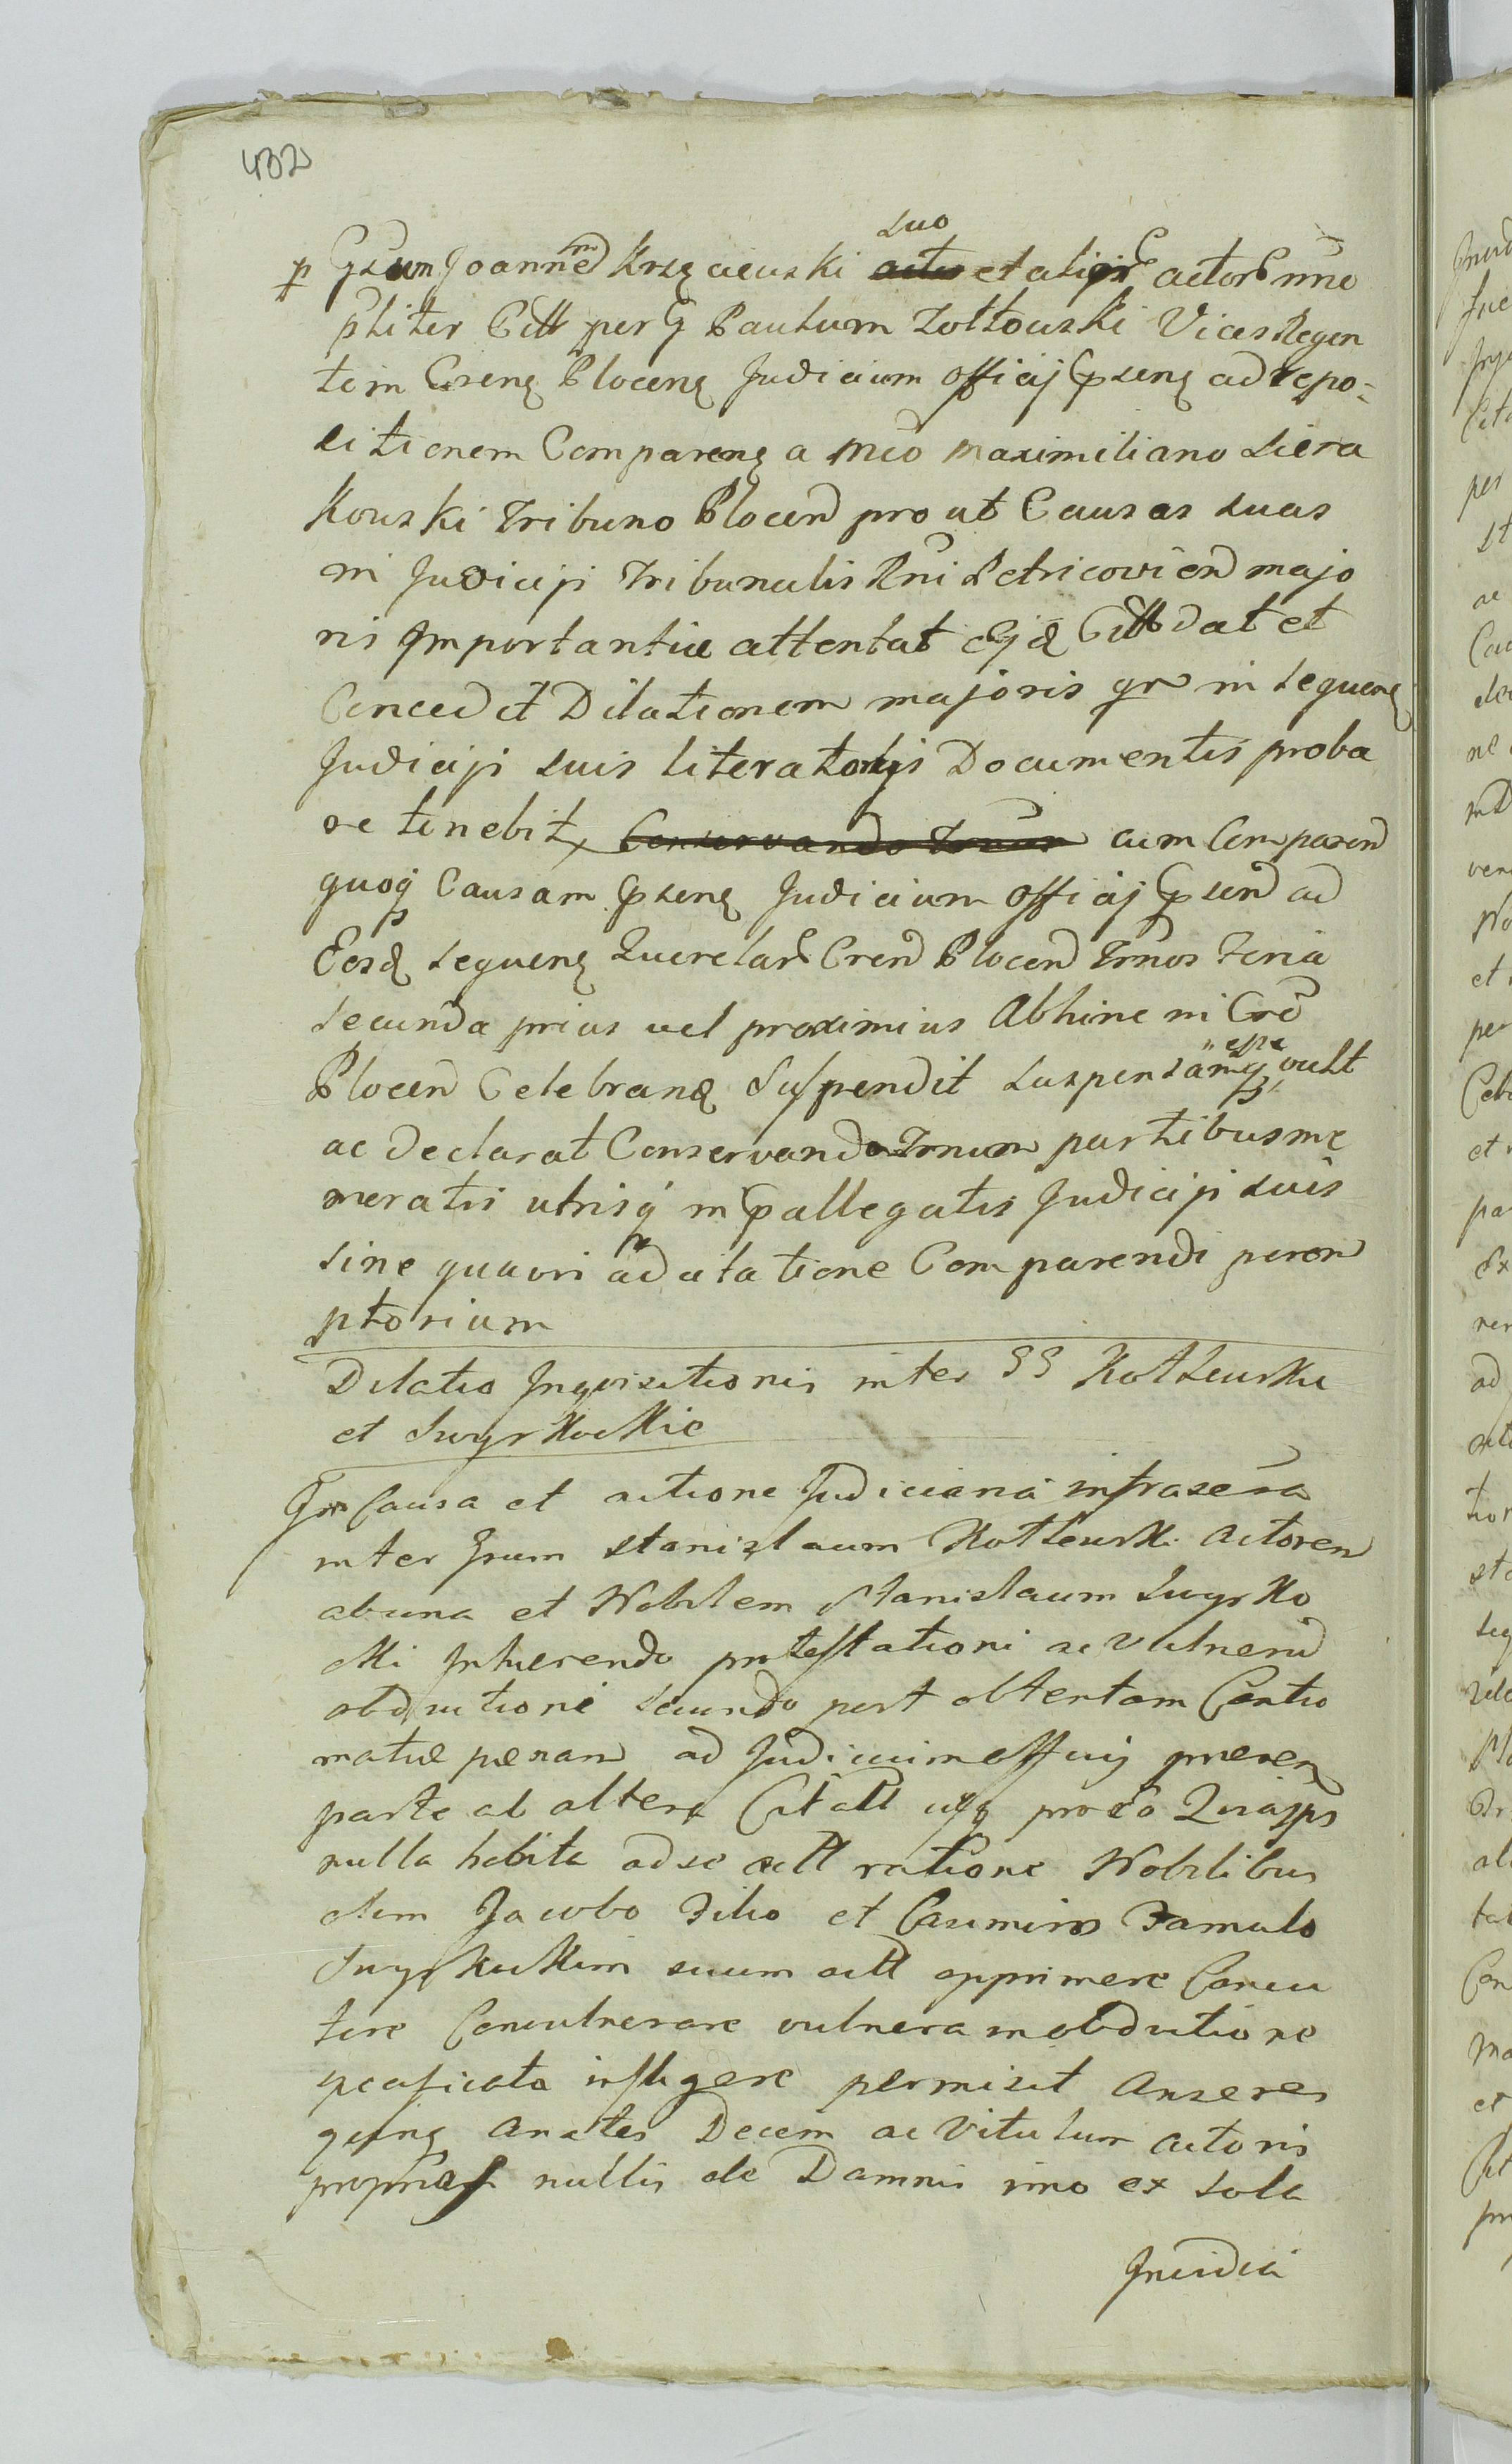 432
suo
p Gsum Joannem Krzęciewski actio et alior actor nno
pliter Citt per G Paulum Zołtowski Vices Regen
tem Crsenę Plocenę Judicium Officij Cpsenę ad repo-
sitionem Comparenę a Mco Maximiliano Siera
kowski Tribuno Plocen pro ut Causas suas
in Judicijs Tribunalis Rni Petricovien majo
ris Importantiæ attentat Ejq Citt dat et
Concedit Dilationem majoris qr in sequenę
Judicijs suis literatorijs Documentis proba
re tenebit, Conservando Tnum cum Comparen
quoq Causam Cpsenę Judicium Officij Cpsen ad
Eosq sequenę Querelar Cren Plocen Tmnos Feria
secunda prius vel proximius Abhinc in Crd
Plocen Celebranę Suspendit suspensamq esse vult
ac declarat Conservando Tmnum partibus me
meratis utrisq in Cpallegatis Judicijs suis
sine quavis adcitatione Comparendi perem
ptorium
Dilatio Inquisitionis inter GG Kotlewski
et Swyrkockie
In Causa et actione Judiciaria infrascra
inter Gsum Stanislaum Kotlewski Actorem
ab una et Nobilem Stanislaum Swyrko
cki Inhærendo protestationi ac Vulneru
obductioni secundo post obtentam Contu
matiæ pænam ad Judicium Officij præsen
parte ab altera Citatt
nulla habita ad se citt ratione Nobilibus
olim Jacobo Filio et Casimiro Famulo
Swyrkockim suum actt opprimere Concu
tere Convulnerare vulnera in obductione
specificata infligere permisit Anseres
quinq Anates Decem ac Vitulum actoris
proprias nullis de Damnis imo ex sola
Invidia